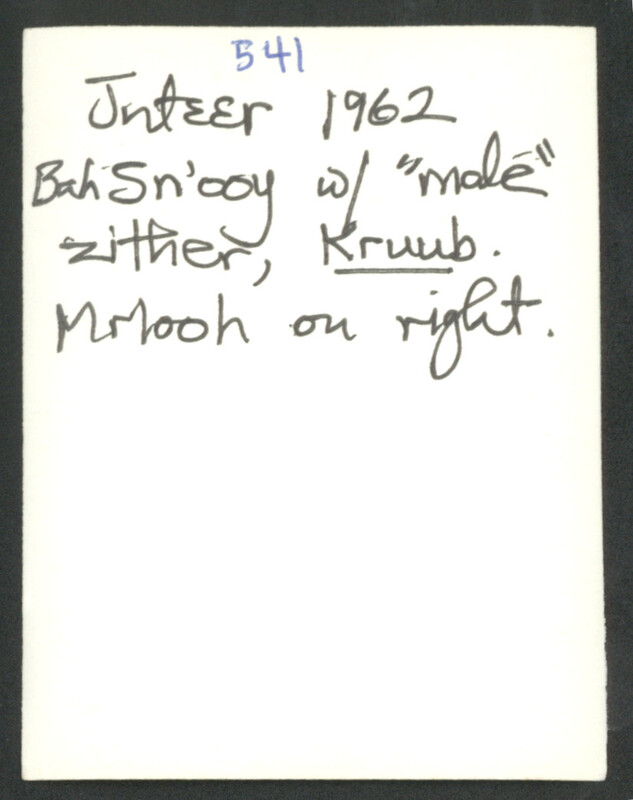 541
Jntɛɛr 1962
Bah Sn'ooy w/ "male"
zither, Kruub.
Mrlooh on right.